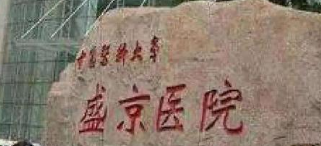 中国医科大学
盛京医院